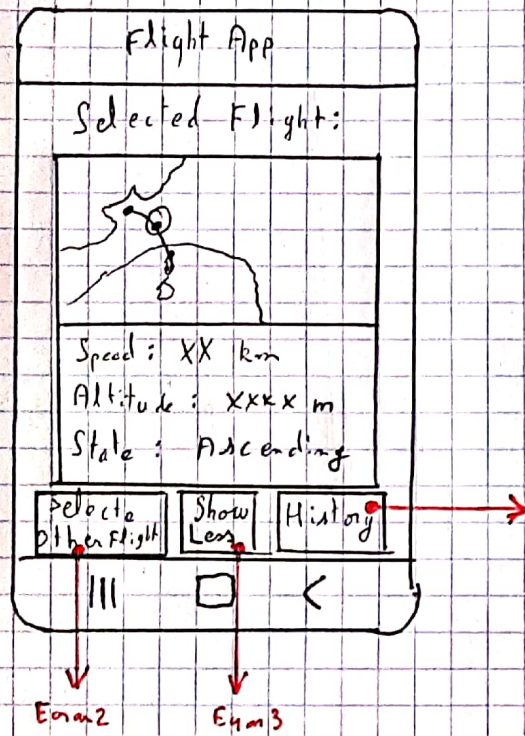 Flight App
Selected Flight:
Speed: XX km
Altitude: XXXX m
State: Ascending
Selecte Other Flight
Show Less
History